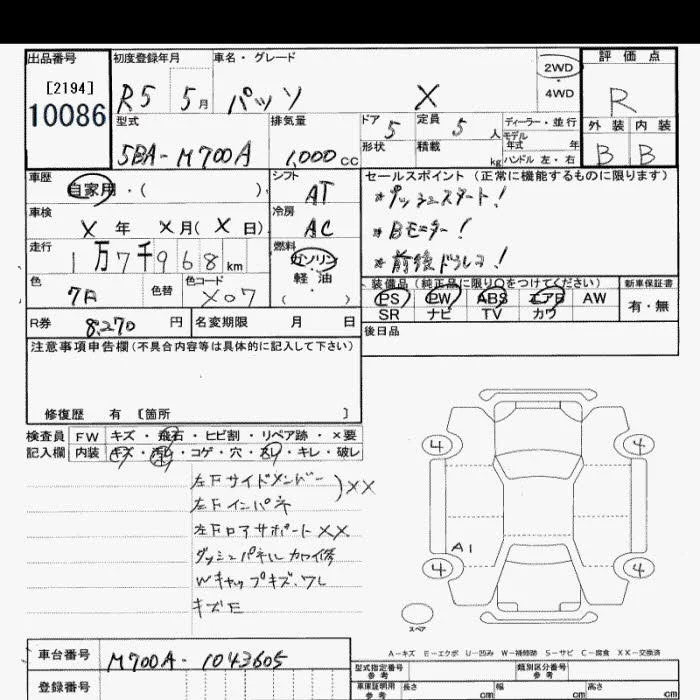 出品番号 初度登録年月 車名・グレード 2WD 評価点
[2194] R5 5月 パッソ X 4WD R
10086 型式 排気量 ドア 5 定員 5人 ディーラー・並行 外装 内装
モデル年式 年
5BA-M700A 1,000cc 形状 積載 kg ハンドル 左・右 B B
車歴 シフト セールスポイント(正常に機能するものに限ります)
自家用・( ) AT *プッシュスタート!
車検 冷房 *Bモニター!
X年 X月(X日) AC *前後ドラレコ!
走行 燃料
1万7千968km ガソリン・軽油 装備品(純正品に限り○をつけてください) 新車保証書
色 色替 色コード ( ) PS PW ABS エアB AW 有・無
X07 SR ナビ TV カワ
R券 8,270円 名変期限 月 日 後日品
注意事項申告欄(不具合内容等は具体的に記入して下さい)
修復歴 有 [箇所 ]
検査員 FW キズ・飛石・ヒビ割・リペア跡・×要
記入欄 内装 キズ・汚れ・コゲ・穴・スレ・キレ・破レ
左Fサイドメンバー
左Fインパネ )XX
左Fロアサポート XX
ダッシュパネル カロ修
Wキャップキズ、ワレ
キズE
4 4
A1
4 4
スペア
A-キズ E-エクボ U-凹み W-補修跡 S-サビ C-腐食 XX-交換済
車台番号 M700A-1043605 型式指定番号 参考 類別区分番号 参考
登録番号 車庫証明用 参考 長さ cm 幅 cm 高さ cm